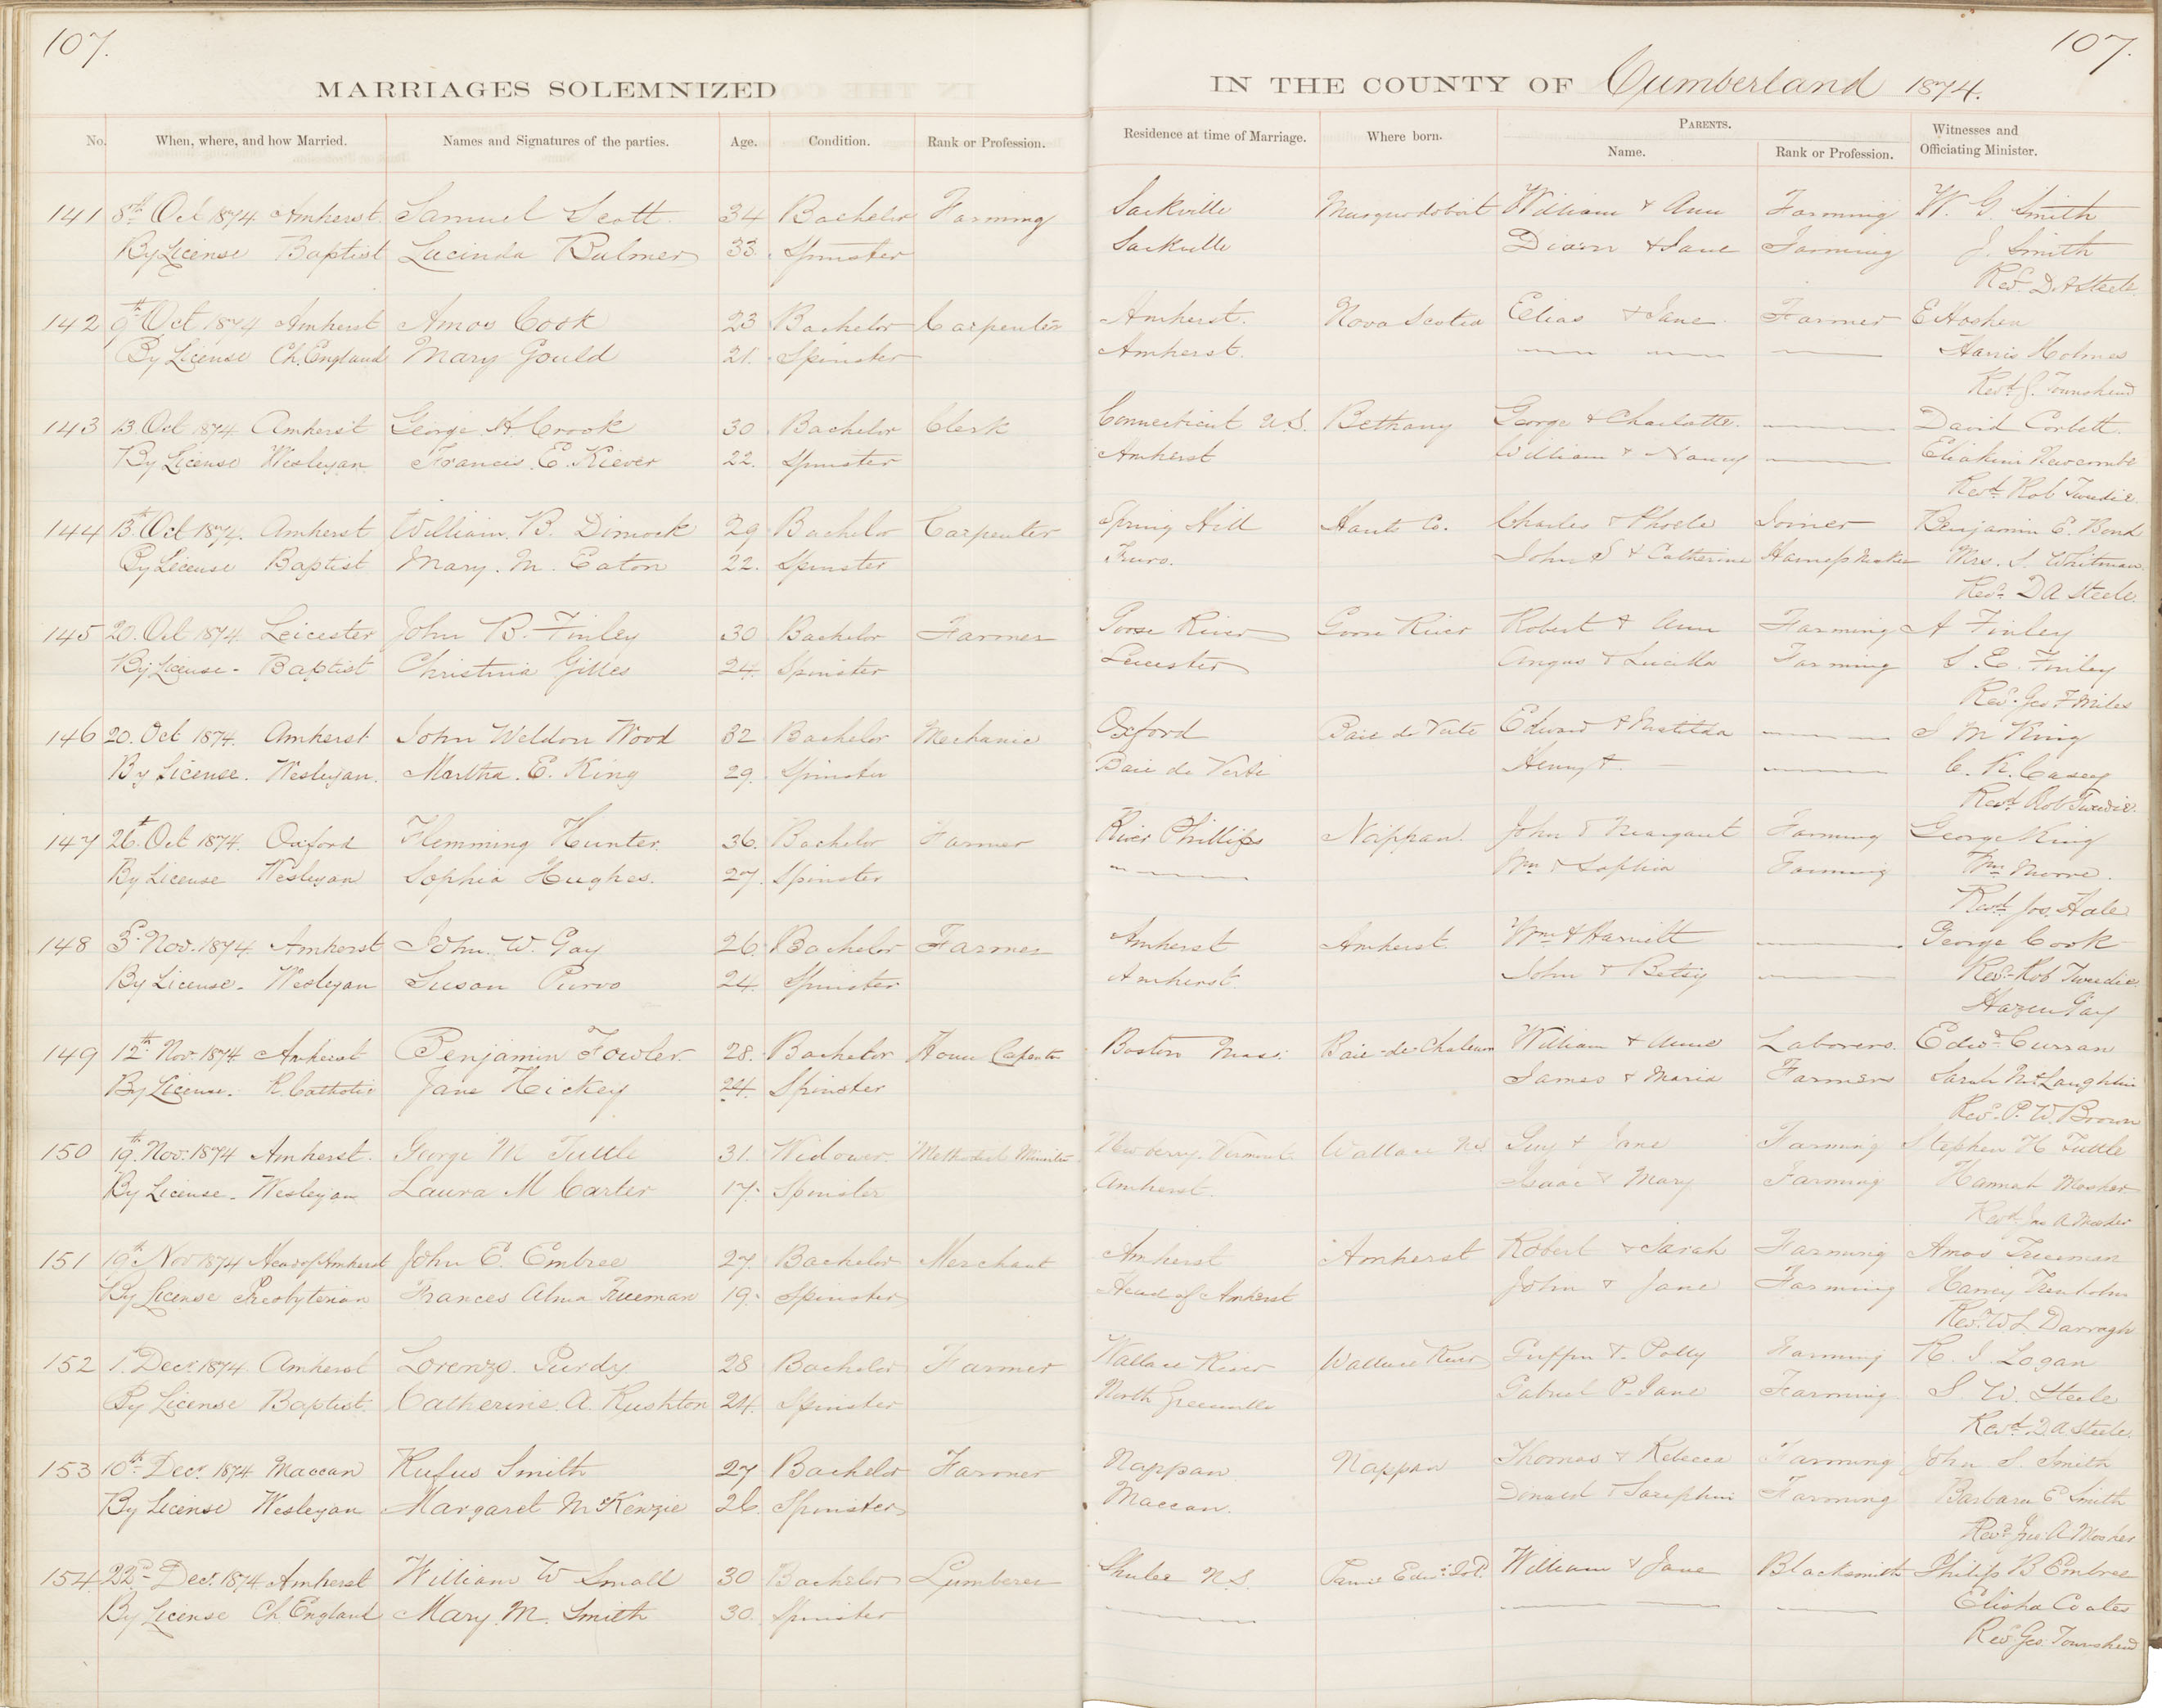 107.
107.
MARRIAGES SOLEMNIZED
IN THE COUNTY OF Cumberland 1874.
No. When, where, and how Married. Names and Signatures of the parties. Age. Condition. Rank or Profession. Residence at time of Marriage. Where born. PARENTS. Name. Rank or Profession. Witnesses and Officiating Minister.
141 8th Oct 1874 Amherst. Samuel Scott. 34 Bachelor Farming Sackville Musquodoboit William & Ann Farming W. G. Smith
By License Baptist Lucinda Bulmer 33 Spinster Sackville Dixon & Jane Farming J. Smith
Revd. D. A Steele.
142 9th Oct 1874 Amherst Amos Cook 23 Bachelor Carpenter Amherst. Nova Scotia Elias & Jane Farmer E
By License Ch. England Mary Gould 21. Spinster Amherst. Harris Holmes
Revd. G. Townshend
143 13 Oct 1874 Amherst George A Crook 30 Bachelor Clerk Connecticut U.S. Bethany George & Charlotte. David Corbett.
By License Wesleyan Francis. E. Kiever 22. Spinster Amherst William & Nancy Eliakim Newcombe
Revd. Rob Tweedie.
144 13th Oct 1874. Amherst William. B. Dimock 29 Bachelor Carpenter Spring Hill Hants Co. Charles & Phoebe Joiner Benjamin E. Bond
By License Baptist Mary. M. Eaton 22. Spinster Truro. John S & Catherine Harness Maker Mrs. S. Whitman.
Revd. D A Steele.
145 20. Oct 1874 Leicester John B. Finley 30 Bachelor Farmer Goose River Goose River Robert & Ann Farming A Finley
By License - Baptist Christina Gilles 24. Spinster Leicester Angus & Lucilla Farming S. E. Finley
Revd. Geo F Miles
146 20. Oct 1874. Amherst John Weldon Wood 32 Bachelor Mechanic Oxford Baie de Verte Edward & Matilda J M King
By License. Wesleyan. Martha. E. King 29. Spinster Baie de Verte Henry & - C. R. Casey
Revd. Rob Tweedie.
147 26t Oct 1874. Oxford Flemming Hunter. 36. Bachelor Farmer River Phillips Nappan. John & Margaret Farming George King
By License Wesleyan Sophia Hughes. 27. Spinster Wm & Sophia Farming Wm
Revd. Jos. Hale
148 3d. Nov. 1874. Amherst John. W. Gay 26. Bachelor Farmer Amherst Amherst. Wm & Harriett George Cook
By License. - Wesleyan Susan Purvo 24. Spinster Amherst. John & Betsy Revd. Rob Tweedie.
Hazen Gay
149 12th. Nov. 1874 Amherst Benjamin Fowler. 28. Bachelor House Carpenter Boston Mass. Baie-de-Chaleur William & Annie Laborers. Edwd Curran
By License. R. Catholic Jane Hickey 24. Spinster James & Maria Farmers Sarah McLaughlin
Revd. P. W. Brown
150 19th. Nov. 1874 Amherst. George M Tuttle 31. Widower. Methodist Minister Newberry. Vermont. Wallace NS Guy & Jane Farming Stephen H Tuttle
By License - Wesleyan Laura M Carter 17. Spinster Amherst. Isaac & Mary Farming Hannah Mosher
Revd. Jno A Mosher
151 19th Nov 1874 Head of Amherst John E. Embree 27. Bachelor Merchant Amherst Amherst Robert & Sarah Farming Amos Trueman
By License Presbyterian Frances Alma Trueman 19. Spinster Head of Amherst John & Jane Farming Harvey Trenholm
Revd. W S. Darragh
152 1. Decr. 1874. Amherst Lorenzo. Purdy 28 Bachelor Farmer Wallace River Wallace River & Polly Farming R. J. Logan
By License Baptist. Catherine. A. Rushton 24. Spinster North Greenville Gabriel & Jane Farming S. W. Steele
Revd. D A Steele.
153 10th. Decr. 1874 Maccan Rufus Smith 27 Bachelor Farmer Nappan Nappan Thomas & Rebecca Farming John S. Smith
By License Wesleyan Margaret McKenzie 26. Spinster Maccan. Donald & Farming Barbara E Smith
Revd. Jno. A Mosher
154. 22d. Decr. 1874 Amherst William W Small 30 Bachelor Lumberer Shulee N.S. Prince Edwd. Isld. William & Jane Blacksmith Philip B Embree
By License Ch England Mary. M. Smith 30. Spinster Elisha Coates
Revd. Geo. Townshend